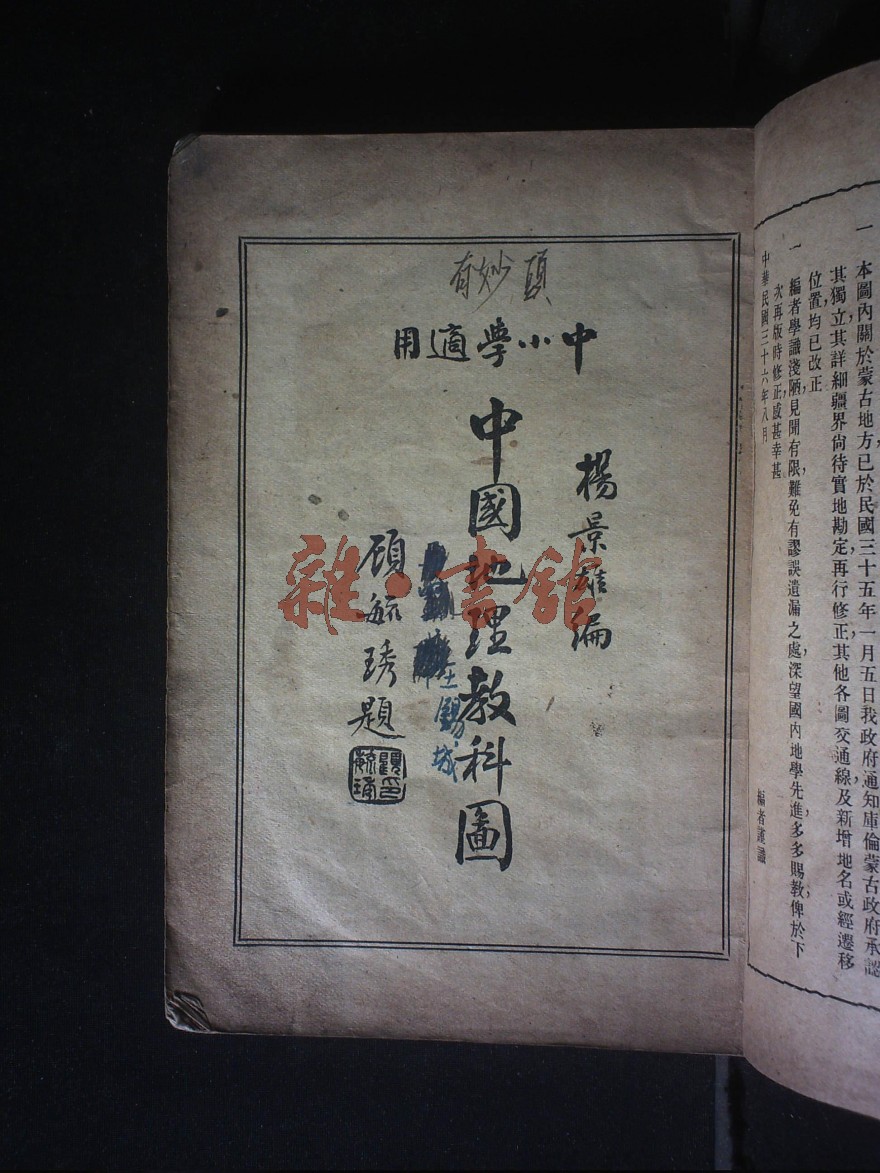 一 本圖內關於蒙古地方已於民國三十五年一月五日我政府通知庫倫蒙古政府承認
其獨立其詳細疆界尙待實地勘定再行修正其他各圖交通線及新增地名或經遷移
位置均已改正
一 編者學識淺陋見聞有限難免有謬誤遺漏之處深望國內地學先進多多賜敎俾於下
次再版時修正感甚幸甚
中華民國三十六年八月
編者謹識
有妙頭
中小學適用
楊景雄編
中國地理教科圖
錫城
顧毓琇題
顧毓琇印
雜·書館